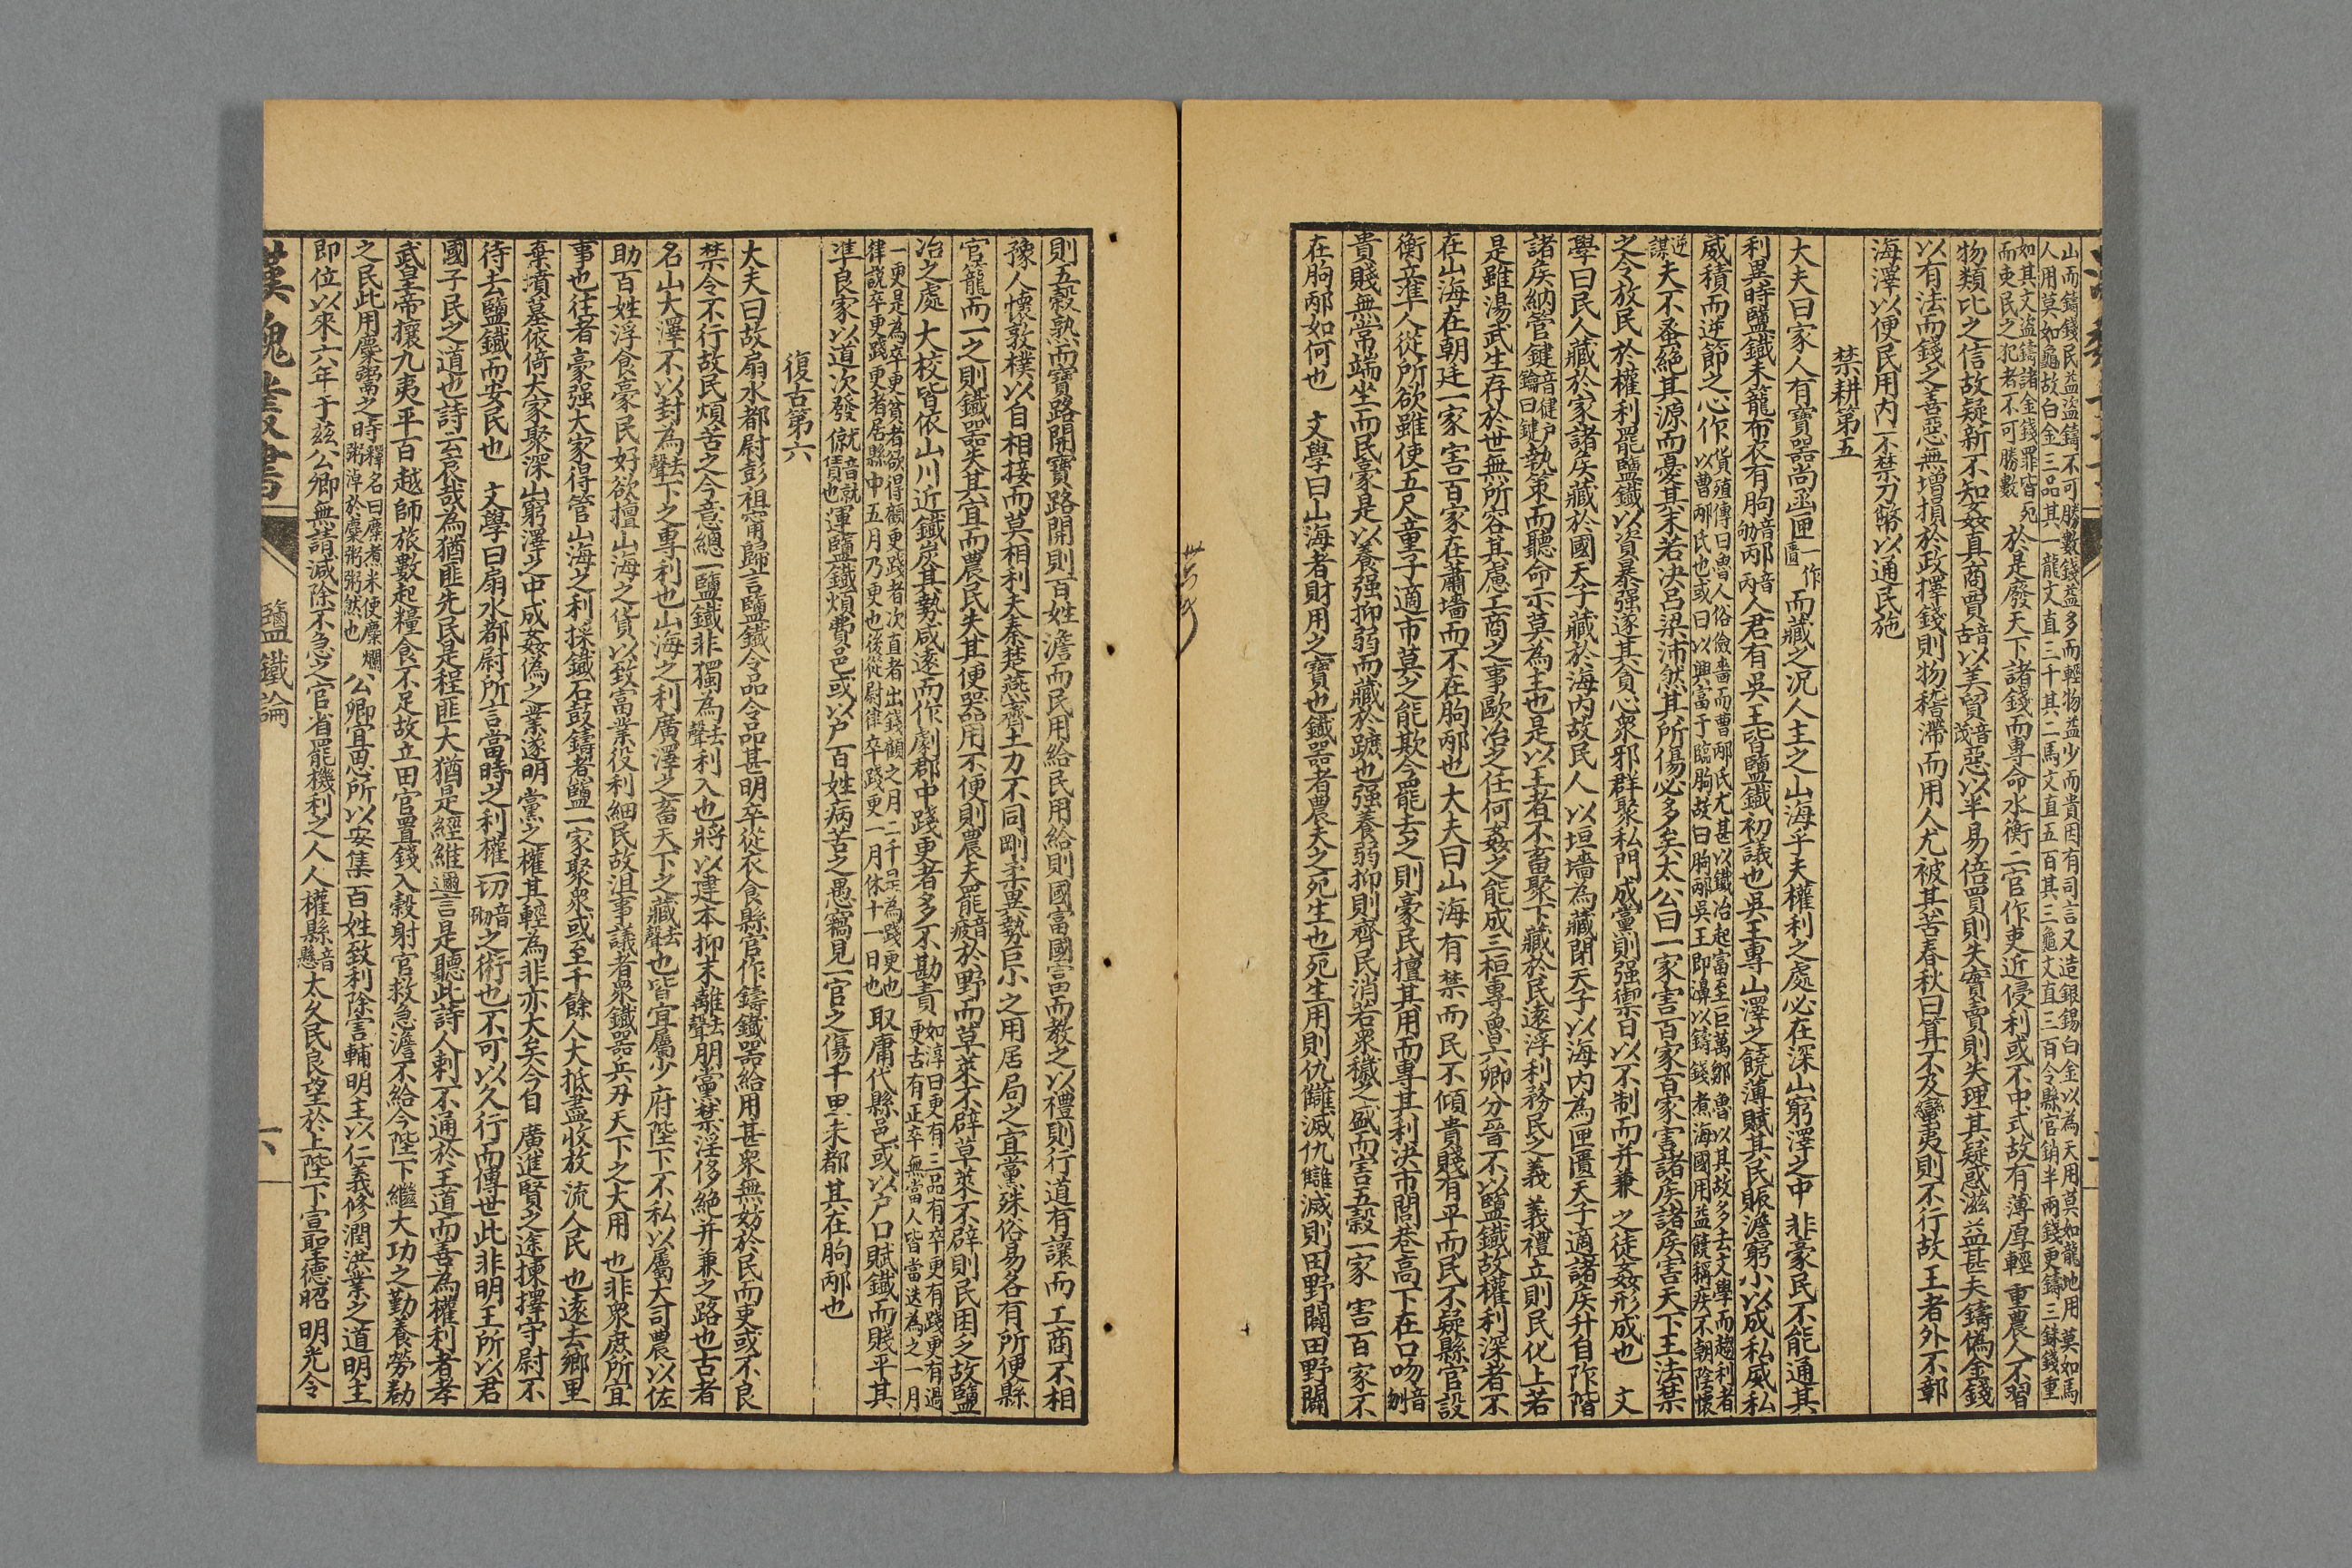 山而鑄錢民益盜鑄不可勝數錢益多而輕物益少而貴因有司言又造銀錫白金以為天用莫如龍地用莫如馬
人用莫如龜故白金三品其一龍文直三千其二馬文直五百其三龜文直三百令縣官銷半兩錢更鑄三銖錢重
如其文盜鑄諸金錢罪皆死
而吏民之犯者不可勝數
於是廢天下諸錢而專命水衡三官作吏近侵利或不中式故有薄厚輕重農人不習
物類比之信故疑新不知姦真商賈音古以美貿音茂惡以半易倍買則失實賣則失理其疑惑滋益甚夫鑄偽金錢
以有法而錢之善惡無增損於政擇錢則物稽滯而用人尤被其苦春秋曰算不及蠻夷則不行故王者外不鄣
海澤以便民用內不禁刀幣以通民施
禁耕第五
大夫曰家人有寶器尚函匣一作匵而藏之況人主之山海乎夫權利之處必在深山窮澤之中非豪民不能通其
利異時鹽鐵未籠布衣有朐音劬邴音丙人君有吳王皆鹽鐵初議也吳王專山澤之饒薄賦其民賑澹窮小以成私威私
威積而逆節之心作
貨殖傳曰魯人俗儉嗇而曹邴氏尤甚以鐵冶起富至巨萬鄒魯以其故多去文學而趨利者
以曹邴氏也或曰以興富于臨朐故曰朐邴吳王即濞以鑄錢煮海國用益饒稱疾不朝陰懷
逆謀夫不蚤絕其源而憂其末若決呂梁沛然其所傷必多矣太公曰一家害百家百家害諸侯諸侯害天下王法禁
之今放民於權利罷鹽鐵以資暴强遂其貪心眾邪群聚私門成黨則强御日以不制而并兼之徒姦形成也　文
學曰民人藏於家諸侯藏於國天子藏於海內故民人以垣墻為藏閉天子以海內為匣匱天子適諸侯升自阼階
諸侯納管鍵音健戶鑰曰鍵執策而聽命示莫為主也是以王者不畜聚下藏於民遠浮利務民之義義禮立則民化上若
是雖湯武生存於世無所容其慮工商之事歐冶之任何姦之能成三桓專魯六卿分晉不以鹽鐵故權利深者不
在山海在朝廷一家害百家在蕭墻而不在朐邴也大夫曰山海有禁而民不傾貴賤有平而民不疑縣官設
衡立準人從所欲雖使五尺童子適市莫之能欺今罷去之則豪民擅其用而專其利決市閭巷高下在口吻音刎
貴賤無常端坐而民豪是以養强抑弱而藏於蹠也强養弱抑則齊民消若眾穢之盛而害五穀一家害百家不
在朐邴如何也　文學曰山海者財用之寶也鐵器者農夫之死生也死生用則仇讎滅仇讎滅則田野闢田野闢
則五穀熟而寶路開寶路開則百姓澹而民用給民用給則國富國富而教之以禮則行道有讓而工商不相
豫人懷敦樸以自相接而莫相利夫秦楚燕齊土力不同剛柔異勢巨小之用居局之宜黨殊俗易各有所便縣
官籠而一之則鐵器失其宜而農民失其便器用不便則農夫罷音疲於野而草萊不辟草萊不辟則民困乏故鹽
冶之處大校皆依山川近鐵炭其勢咸遠而作劇郡中踐更者多不勘責
如淳曰更有三品有卒更有踐更有過
更古有正卒無當人皆當迭為之一月
一更是為卒更貧者欲得顧更踐者次直者出錢顧之月二千是為踐更也
律說卒更踐更者居縣中五月乃更也後從尉律卒踐更一月休十一日也
取庸代縣邑或以戶口賦鐵而賤平其
準良家以道次發僦音就賃也運鹽鐵煩費邑或以戶百姓病苦之愚竊見一官之傷千里未都其在朐邴也
復古第六
大夫曰故扇水都尉彭祖甯歸言鹽鐵令品令品甚明卒徒衣食縣官作鑄鐵器給用甚眾無妨於民而吏或不良
禁令不行故民煩苦之今意總一鹽鐵非獨為去聲利入也將以建本抑末離去聲朋黨禁淫侈絕并兼之路也古者
名山大澤不以封為去聲下之專利也山海之利廣澤之畜天下之藏去聲也皆宜屬少府陛下不私以屬大司農以佐
助百姓浮食豪民好欲擅山海之貨以致富業役利細民故沮事議者眾鐵器兵刃天下之大用也非眾庶所宜
事也往者豪强大家得管山海之利採鐵石鼓鑄煮鹽一家聚眾或至千餘人大抵盡收放流人民也遠去鄉里
棄墳墓依倚大家聚深山窮澤之中成姦偽之業遂朋黨之權其輕為非亦大矣今自廣進賢之途揀擇守尉不
待去鹽鐵而安民也　文學曰扇水都尉所言當時之利權一切音砌之術也不可以久行而傳世此非明王所以君
國子民之道也詩云哀哉為猶匪先民是程匪大猶是經維邇言是聽此詩人剌不通於王道而善為權利者孝
武皇帝攘九夷平百越師旅數起糧食不足故立田官置錢入穀射官救急澹不給今陛下繼大功之勤養勞勌
之民此用麋鬻之時
釋名曰麋煮米使糜爛
粥淖於糜粥粥然也
公卿宜思所以安集百姓致利除害輔明主以仁義修潤洪業之道明主
即位以來六年于茲公卿無請減除不急之官省罷機利之人人權縣音懸太久民良望於上陛下宣聖德昭明光令
漢魏叢書　鹽鐵論　六